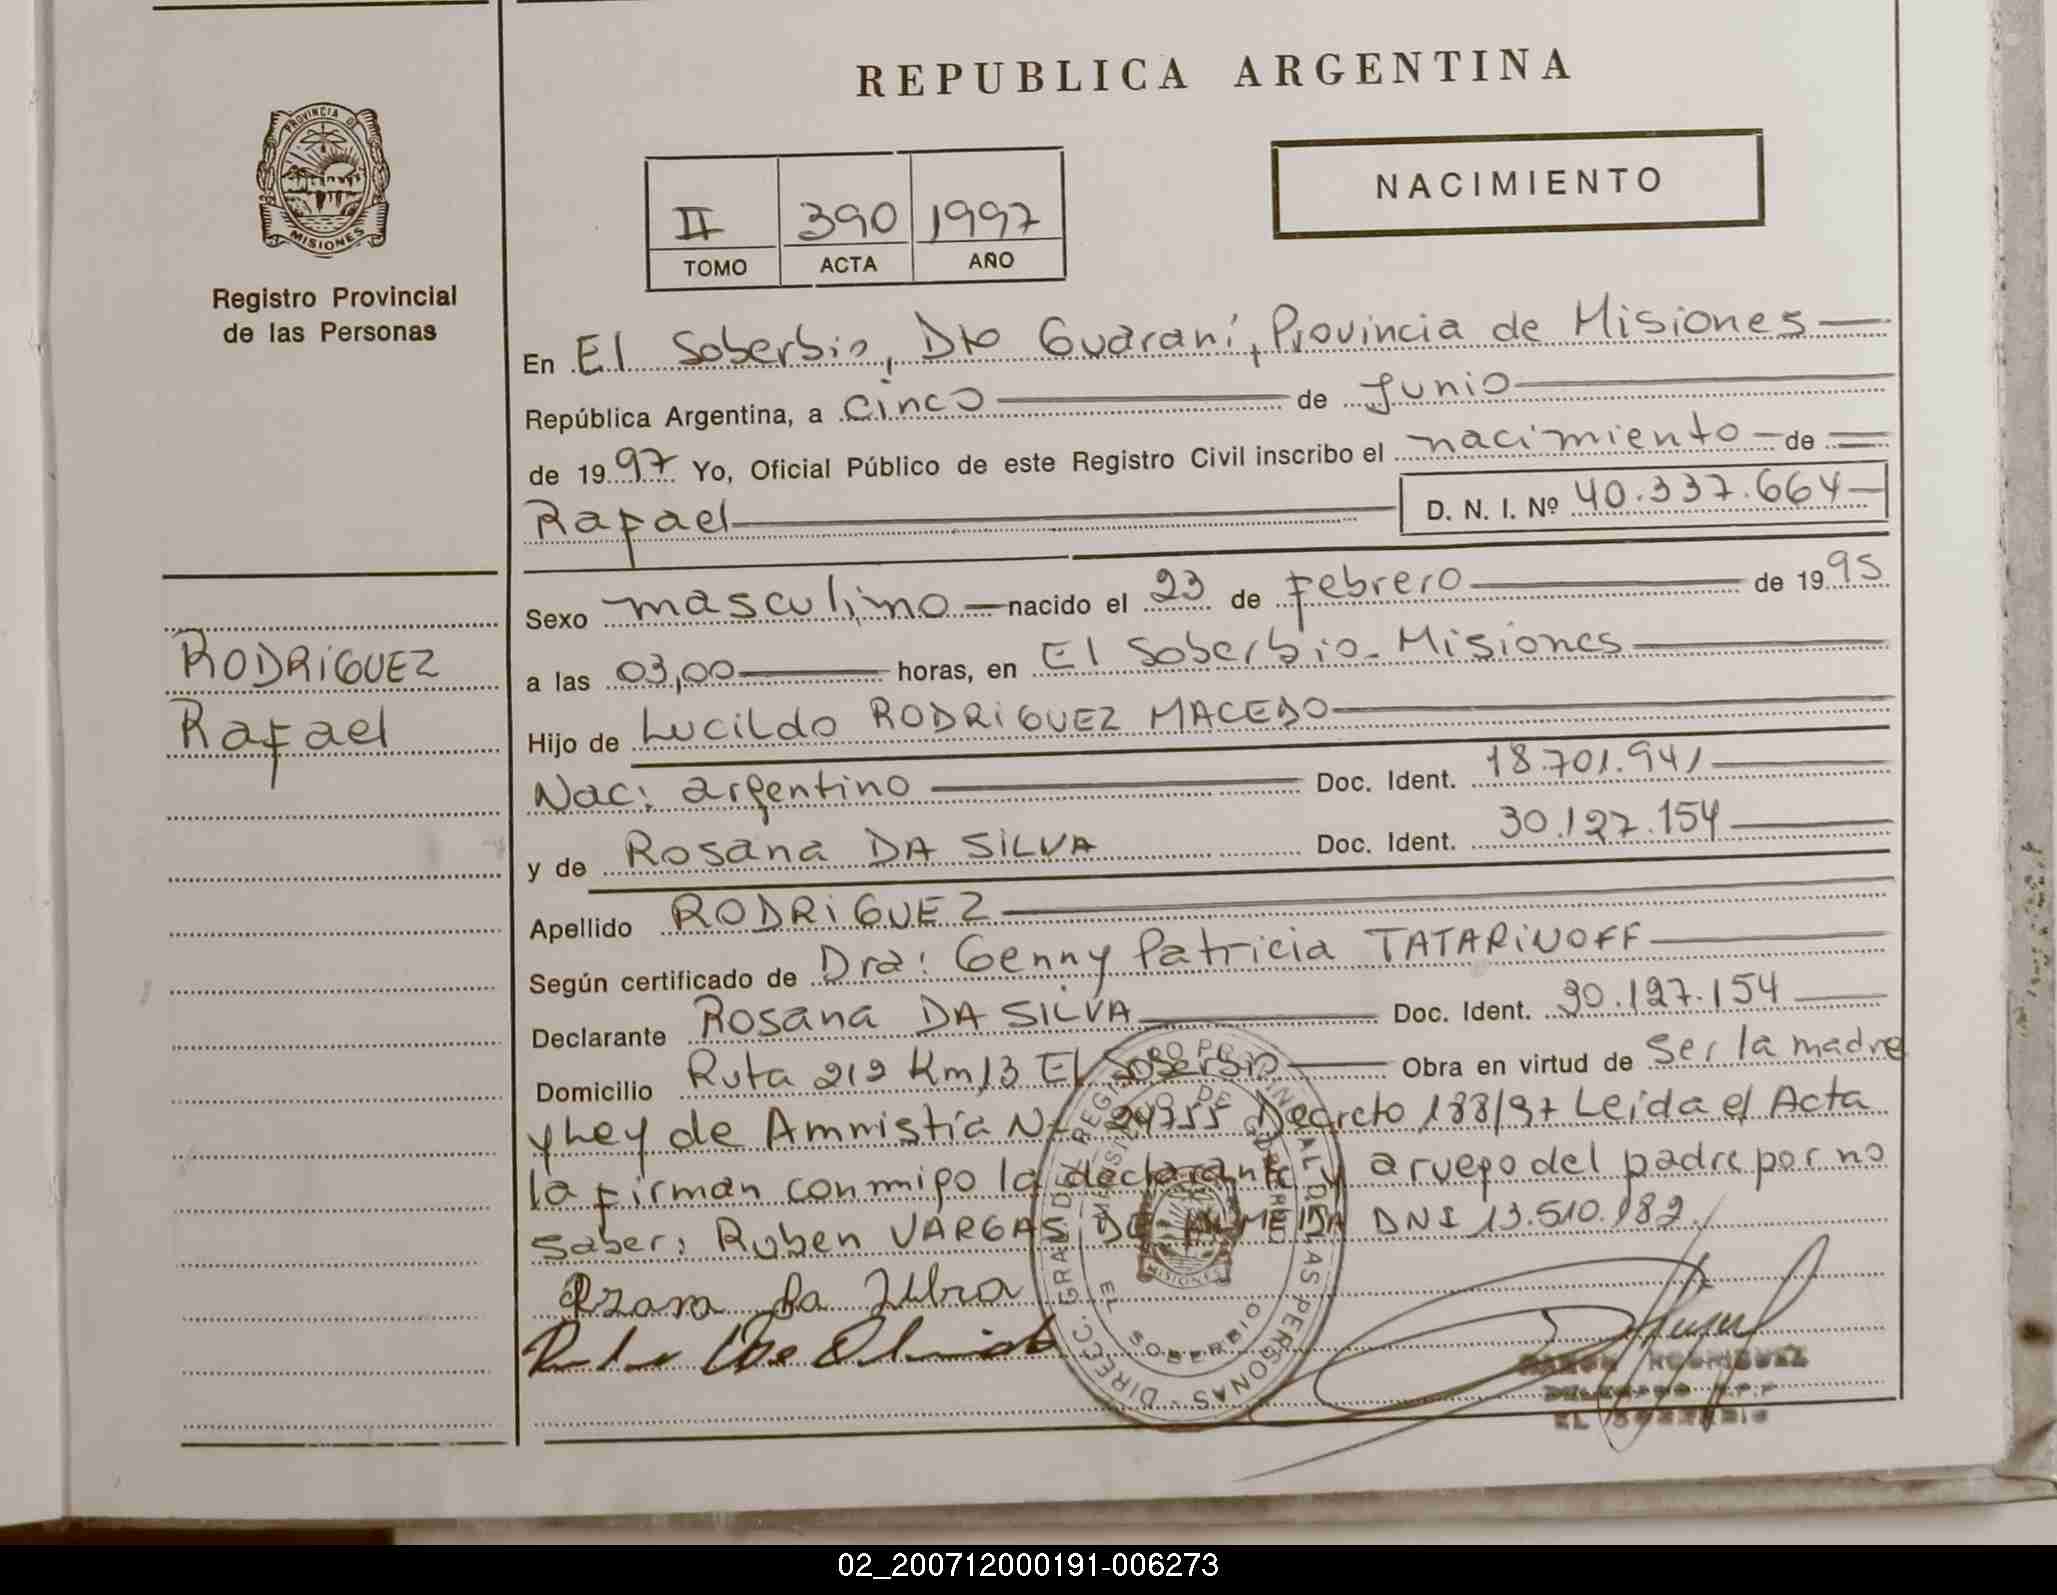 REPUBLICA ARGENTINA
PROVINCIA DE
MISIONES
Registro Provincial
de las Personas
NACIMIENTO
II 390 1997
TOMO ACTA AÑO
En El Soberbio, Dto Guaraní, Provincia de Misiones
República Argentina, a cinco de Junio
de 1997 Yo, Oficial Público de este Registro Civil inscribo el nacimiento de
Rafael D. N. I. Nº 40.337.664
Sexo masculino nacido el 23 de febrero de 1995
RODRiGUEZ
Rafael
a las 03,00 horas, en El Soberbio-Misiones
Hijo de Lucildo RODRiGUEZ MACEDO
Nac: argentino Doc. Ident. 18.701.941
y de Rosana DA SiLVA Doc. Ident. 30.127.154
Apellido RODRiGUEZ
Según certificado de Dra: Genny Patricia TATARiNOFF
Declarante Rosana DA SiLVA Doc. Ident. 30.127.154
Domicilio Ruta 212 Km13 El Soberbio Obra en virtud de ser la madre
y Ley de Amnistía Nº 24755 Decreto 188/97 Leída el Acta
la firman conmigo la declarante y a ruego del padre por no
saber: Ruben VARGAS DE ALMEIDA DNI 13.510.182.
Rosana da Silva
DIRECC. GRAL DEL REGISTRO PROVINCIAL DE LAS PERSONAS
MISIONES
EL SOBERBIO
RAMON RODRIGUEZ
DELEGADO R.P.P
EL SOBERBIO
02_200712000191-006273